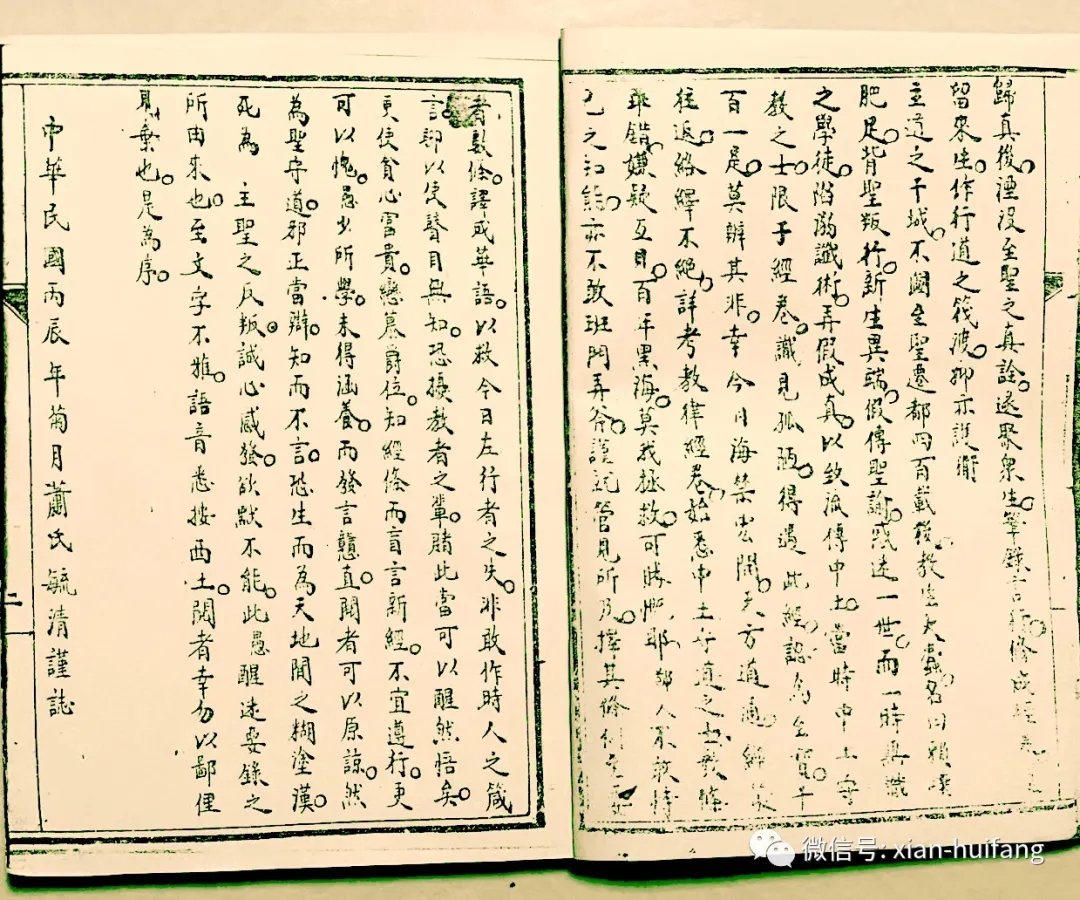 歸真後湮没至聖之真詮遂聚衆生筆錄言行修成經
留來生作行道之筏渡抑亦護衛
主道之干城不圖至聖遷都両百載後教出大蠹名曰賴噗
肥足背聖叛行新生異端假傳聖諭惑迷一世而一時真識
之學徒陷溺讖術弄假成真以致流傳中土當時中土守
教之士限于經卷識見孤陋得遇此經認為至寶千
百一是莫辨其非幸今日海禁大開天方道通
往返絡繹不絕詳考教律經卷始悉中土守道之士教條
乖錯嫌疑互目百年黑海莫我拯救可勝恨耶鄙人不敢恃
己之知能亦不敢班門弄斧謹記管見所及擇其條例至要
者數條譯成華語以救今日左行者之失非敢作時人之箴
言鄙以使瞽目無知恐擾教者之輩賭此當可以醒然悟矣
更使貪心富貴戀慕爵位知經條而盲言新經不宜遵行更
可以愧愚少所學未得涵養而發言戇直閱者可以原諒然
為聖守道邪正當辯知而不言恐生而為天地間之糊塗漢
死為 主聖之反叛誠心感發欲默不能此愚醒迷要錄之
所由來也至文字不雅語音悉按西土閱者幸勿以鄙俚
見棄也是為序
中華民國丙辰年菊月蕭氏毓清謹誌
二
微信号: xian-huifang